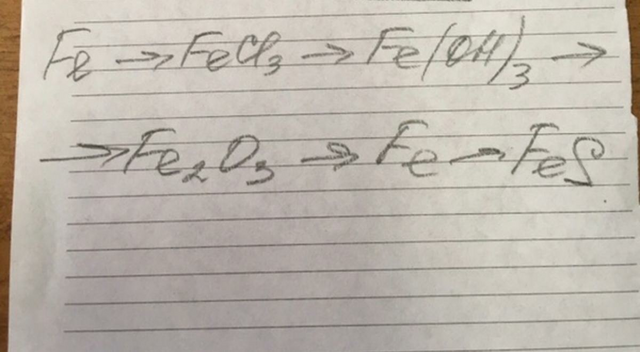 Fe → FeCl₃ → Fe(OH)₃ →
→ Fe₂O₃ → Fe → FeS